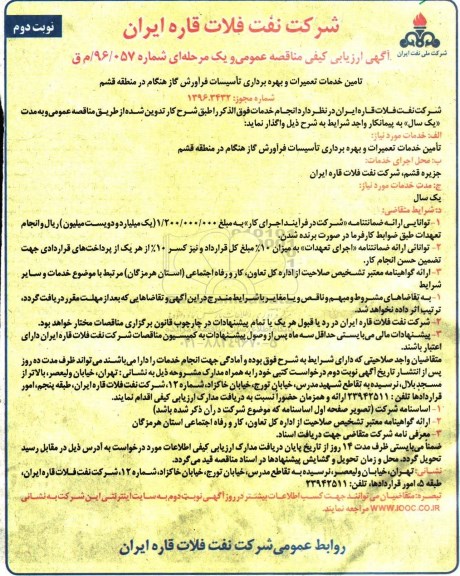 نوبت دوم
شرکت نفت فلات قاره ایران
شرکت ملی نفت ایران
آگهی ارزیابی کیفی مناقصه عمومی و یک مرحله‌ای شماره ۹۶/۰۵۷/م ق
تامین خدمات تعمیرات و بهره برداری تأسیسات فرآورش گاز هنگام در منطقه قشم
شماره مجوز: ۱۳۹۶.۳۴۳۲
شرکت نفت فلات قاره ایران در نظر دارد انجام خدمات فوق الذکر را طبق شرح کار تدوین شده از طریق مناقصه عمومی و به مدت
«یک سال» به پیمانکار واجد شرایط به شرح ذیل واگذار نماید:
الف: خدمات مورد نیاز:
تأمین خدمات تعمیرات و بهره برداری تأسیسات فرآورش گاز هنگام در منطقه قشم
ب: محل اجرای خدمات:
جزیره قشم، شرکت نفت فلات قاره ایران
ج: مدت خدمات مورد نیاز:
یک سال
د: شرایط متقاضی:
۱- توانایی ارائه ضمانتنامه «شرکت در فرآیند اجرای کار» به مبلغ ۱/۲۰۰/۰۰۰/۰۰۰ (یک میلیارد و دویست میلیون) ریال و انجام
تعهدات طبق ضوابط کارفرما در صورت برنده شدن.
۲- توانائی ارائه ضمانتنامه «اجرای تعهدات» به میزان ۱۰٪ مبلغ کل قرارداد و نیز کسر ۱۰٪ از هر یک از پرداخت‌های قراردادی جهت
تضمین حسن انجام کار.
۳- ارائه گواهینامه معتبر تشخیص صلاحیت از اداره کل تعاون، کار و رفاه اجتماعی (استان هرمزگان) مرتبط با موضوع خدمات و سایر
شرایط
۱- به تقاضاهای مشروط و مبهم و ناقص و یا مغایر با شرایط مندرج در این آگهی و تقاضاهایی که بعد از مهلت مقرر دریافت گردد،
ترتیب اثر داده نخواهد شد.
۲- شرکت نفت فلات قاره ایران در رد یا قبول هر یک یا تمام پیشنهادات در چارچوب قانون برگزاری مناقصات مختار خواهد بود.
۳- پیشنهادات مالی می‌بایستی حداقل سه ماه پس از وصول پیشنهادات به کمیسیون مناقصات شرکت نفت فلات قاره ایران دارای
اعتبار باشند.
متقاضیان واجد صلاحیتی که دارای شرایط به شرح فوق بوده و آمادگی جهت انجام خدمات را دارا می‌باشند می‌تواند ظرف مدت ده روز
پس از انتشار تاریخ آگهی نوبت دوم درخواست کتبی خود را به همراه مدارک مشروحه ذیل به نشانی: تهران، خیابان ولیعصر، بالاتر از
مسجد بلال، نرسیده به تقاطع شهید مدرس، خیابان تورج، خیابان خاکزاد، شماره ۱۲، شرکت نفت فلات قاره ایران، طبقه پنجم، امور
قراردادها تلفن: ۲۳۹۴۲۵۱۱ ارائه و همزمان حضوراً نسبت به دریافت مدارک ارزیابی کیفی اقدام نمایند.
۱- اساسنامه شرکت (تصویر صفحه اول اساسنامه که موضوع شرکت در آن ذکر شده باشد)
۲- ارائه گواهینامه معتبر تشخیص صلاحیت از اداره کل تعاون، کار و رفاه اجتماعی استان هرمزگان
۳- معرفی نامه شرکت متقاضی جهت دریافت اسناد.
ضمناً می‌بایستی ظرف مدت ۱۴ روز از تاریخ پایان دریافت مدارک ارزیابی کیفی اطلاعات مورد درخواست به آدرس ذیل در مقابل رسید
تحویل گردد. محل و زمان تحویل و گشایش پیشنهادها در اسناد مناقصه قید می‌گردد.
نشانی: تهران، خیابان ولیعصر، نرسیده به تقاطع مدرس، خیابان تورج، خیابان خاکزاد، شماره ۱۲، شرکت نفت فلات قاره ایران،
طبقه ۵، امور قراردادها، تلفن: ۲۳۹۴۲۵۱۱
تبصره: متقاضیان می‌توانند جهت کسب اطلاعات بیشتر در روز آگهی نوبت دوم به سایت اینترنتی این شرکت به نشانی
WWW.IOOC.CO.IR مراجعه نمایند.
روابط عمومی شرکت نفت فلات قاره ایران